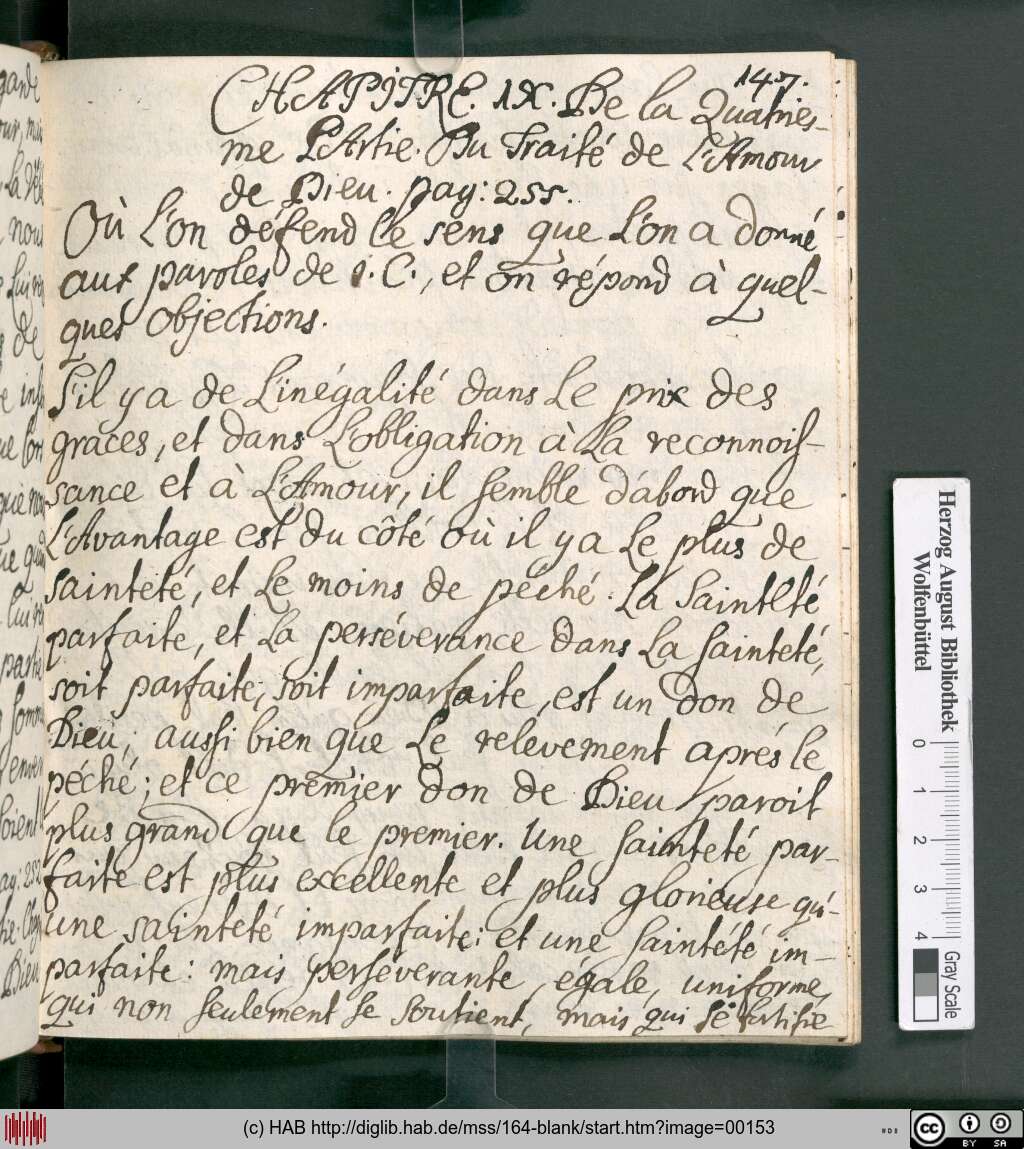 147.
CHAPITRE. IX. De la Quatries-
me PArtie. Du Traité de L'Amour
de Dieu. pag: 255.
Où L'on défend le sens que L'on a donné
aux paroles de J. C., et on répond à quel-
ques Objections.
S'il y a de L'inégalité dans Le prix des
graces, et dans L'obligation à La reconnois-
sance et à L'Amour, il semble d'abord que
L'Avantage est du côté où il y a Le plus de
sainteté, et Le moins de péché. La Sainteté
parfaite, et La persévérance dans La sainteté,
soit parfaite, soit imparfaite, est un don de
Dieu, aussi bien que Le relèvement aprés le
péché; et ce premier don de Dieu paroit
plus grand que le premier. Une sainteté par-
faite est plus excellente et plus glorieuse qu'-
une sainteté imparfaite: et une saintété im-
parfaite: mais persévérante, égale, uniforme,
qui non seulement se soutient, mais qui se fortifie
gande
La
nous
de
parte
pag: 252
Dieu
Herzog August Bibliothek
Wolfenbüttel
0 1 2 3 4
Gray Scale
HAB
(c) HAB http://diglib.hab.de/mss/164-blank/start.htm?image=00153
cc BY SA